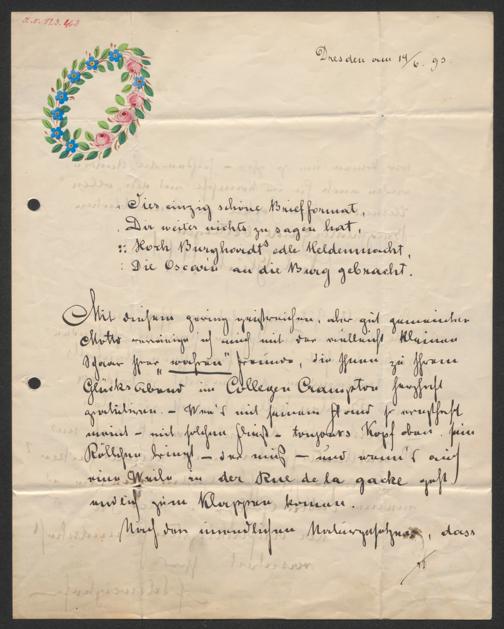 I.N. 123.463
Dresden am 14/6. 93.
Dies einzig schöne Briefformat,
Der weiter nichts zu sagen hat,
:: Hoch Burghardts edle Heldenmacht,
: Die Oscarin an die Burg gebracht.
Mit diesem gering geistreichen, aber gut gemeinten
Motto vereinige ich mich mit der vielleicht kleinen
Schaar Ihrer "wahren" Freunde, die Ihnen zu Ihrem
Glücks Abend im Collegen Crampton herzlichst
gratulieren. – Wer's mit seinem so ernsthaft
meint – mit solchem Fleiß – toujours Kopf oben sein
Röllchen bringt – der muß – und wenn's auch
eine Weile in der Rue de la gacke geht
endlich zum Klappen kommen.
Nach den unendlichen Naturgesetzen, dass